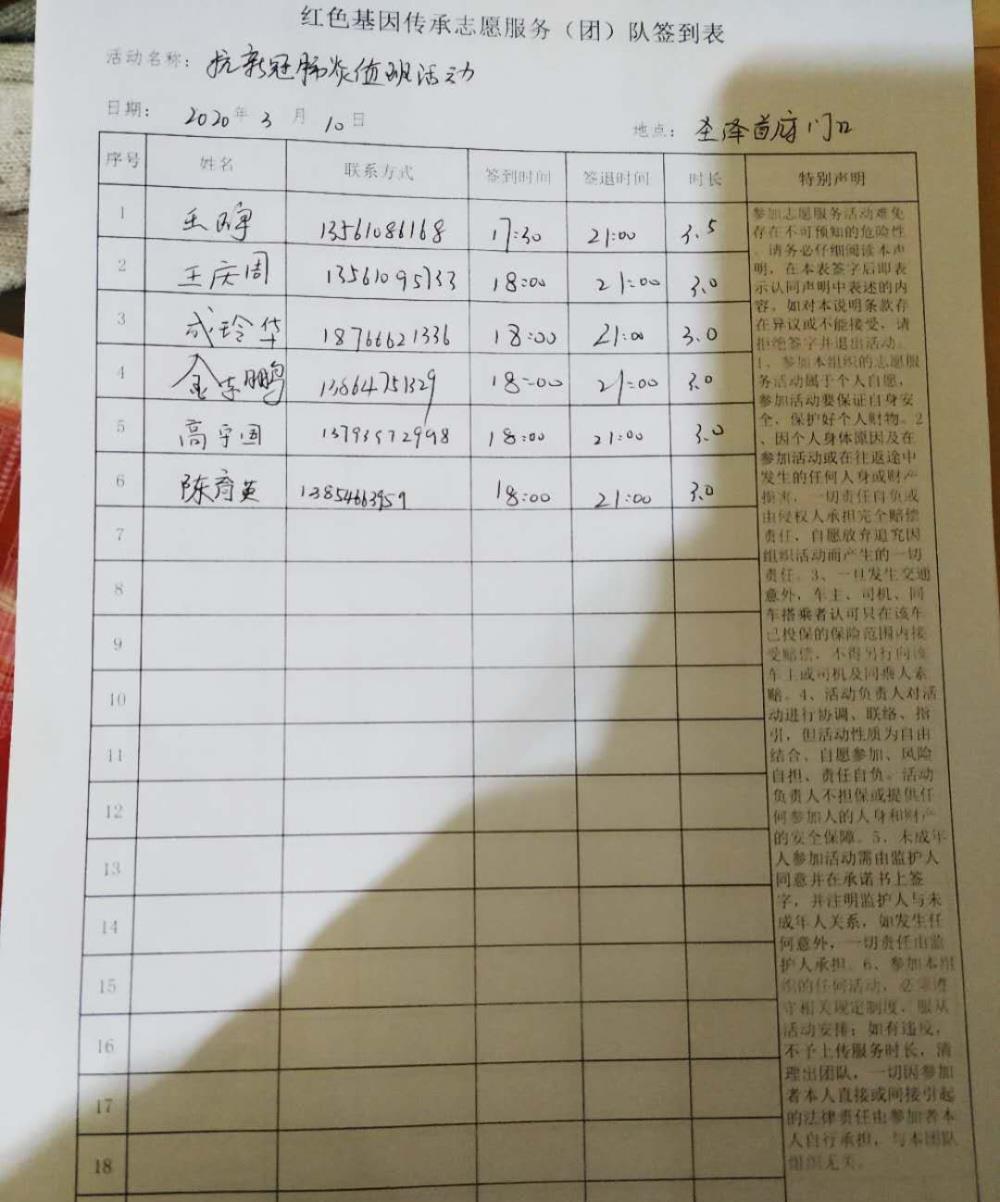 红色基因传承志愿服务（团）队签到表
活动名称：抗新冠肺炎值班活动
日期： 2020年3月10日 地点：圣泽首府门口
序号 姓名 联系方式 签到时间 签退时间 时长 特别声明
1 13561086168 17:30 21:00 3.5
2 王庆周 13561095733 18:00 21:00 3.0
3 成玲华 18766621336 18:00 21:00 3.0
4 13864751329 18:00 21:00 3.0
5 高守国 13793572998 18:00 21:00 3.0
6 陈育英 13854663959 18:00 21:00 3.0
7
8
9
10
11
12
13
14
15
16
17
18
参加志愿服务活动难免
存在不可预知的危险性
，请务必仔细阅读本声
明，在本表签字后即表
示认同声明中表述的内
容。如对本说明条款存
在异议或不能接受，请
拒绝签字并退出活动。
1、参加本组织的志愿服
务活动属于个人自愿，
参加活动要保证自身安
全，保护好个人财物。2
、因个人身体原因及在
参加活动或在往返途中
发生的任何人身或财产
损害，一切责任自负或
由侵权人承担完全赔偿
责任，自愿放弃追究因
组织活动而产生的一切
责任。3、一旦发生交通
意外，车主、司机、同
车搭乘者认可只在该车
已投保的保险范围内接
受赔偿，不得另行向该
车主或司机及同乘人索
赔。4、活动负责人对活
动进行协调、联络、指
引，但活动性质为自由
结合、自愿参加、风险
自担、责任自负。活动
负责人不担保或提供任
何参加人的人身和财产
的安全保障。5、未成年
人参加活动需由监护人
同意并在承诺书上签
字，并注明监护人与未
成年人关系，如发生任
何意外，一切责任由监
护人承担。6、参加本组
织的任何活动，必须遵
守相关规定制度，服从
活动安排；如有违反，
不予上传服务时长，清
理出团队，一切因参加
者本人直接或间接引起
的法律责任由参加者本
人自行承担，与本团队
组织无关。